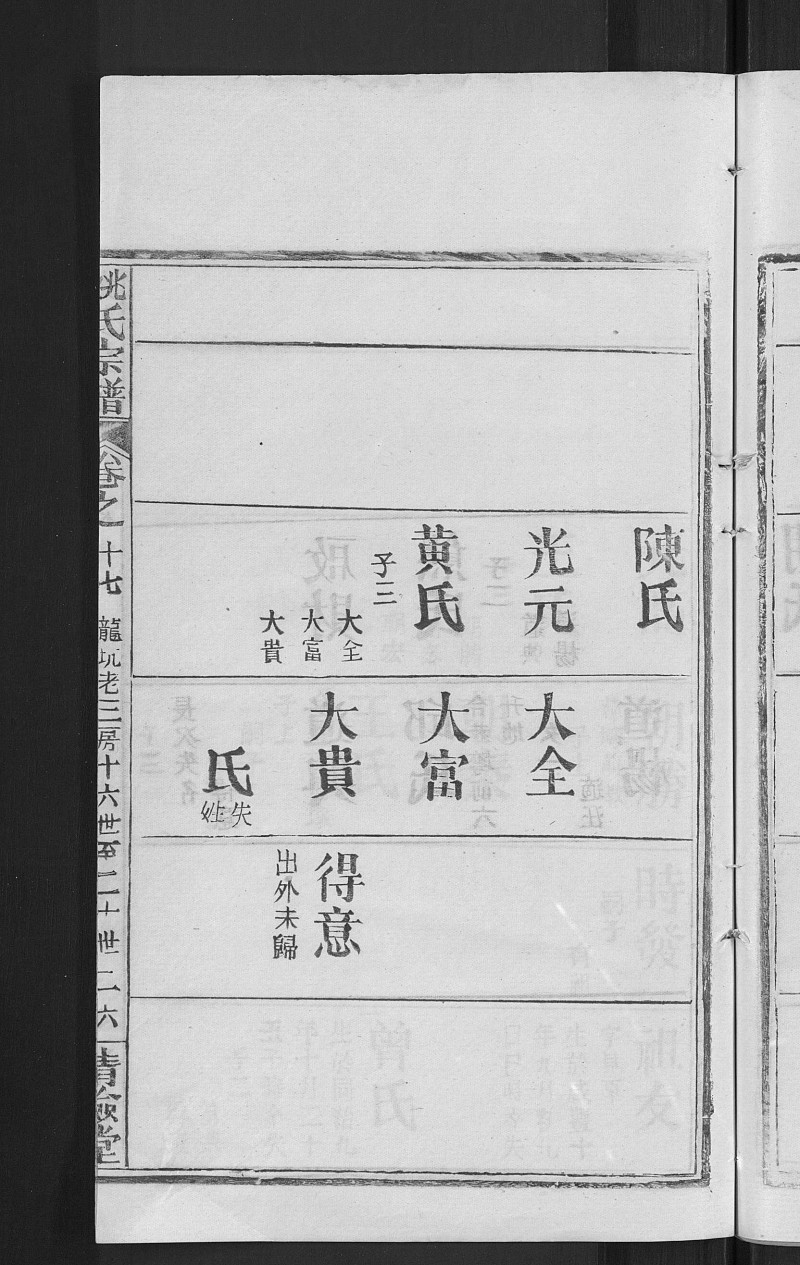 陳氏
光元
黄氏
子三
大全
大富
大貴
大全
大富
大貴
氏
失
姓
得意
出外未歸
姚氏宗譜
卷之十七
龍坑老三房十六世至二十世
二六
清儉堂